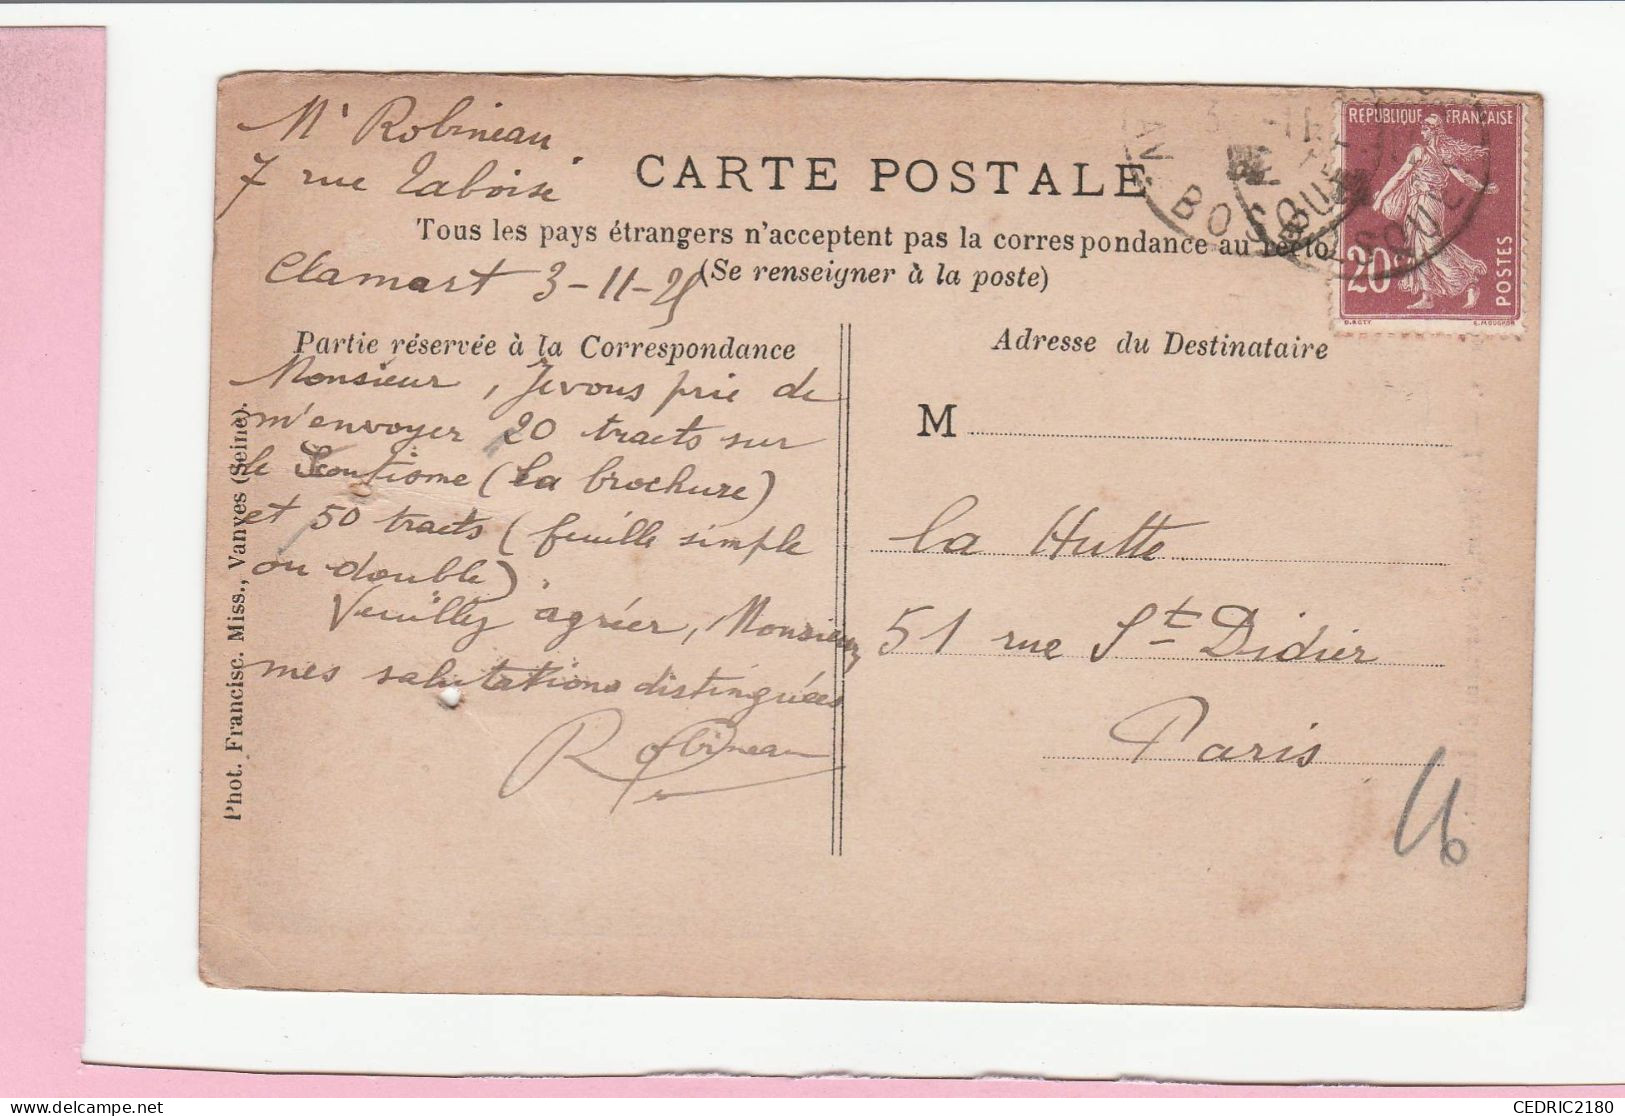 Mr Robineau
7 rue Taboise
CARTE POSTALE
Tous les pays étrangers n'acceptent pas la correspondance au recto
(Se renseigner à la poste)
Clamart 3-11-25
Partie réservée à la Correspondance
Monsieur, Je vous prie de
m'envoyer 20 tracts sur
le Scoutisme (la brochure)
et 50 tracts (feuille simple
ou double).
Veuillez agréer, Monsieur,
mes salutations distinguées
Robineau
Phot. Francisc. Miss., Vanves (Seine).
Adresse du Destinataire
M
la Hutte
51 rue St Didier
Paris
REPUBLIQUE FRANÇAISE
20c
POSTES
O. ROTY
E. MOUCHON
BOSQUET
CEDRIC2180